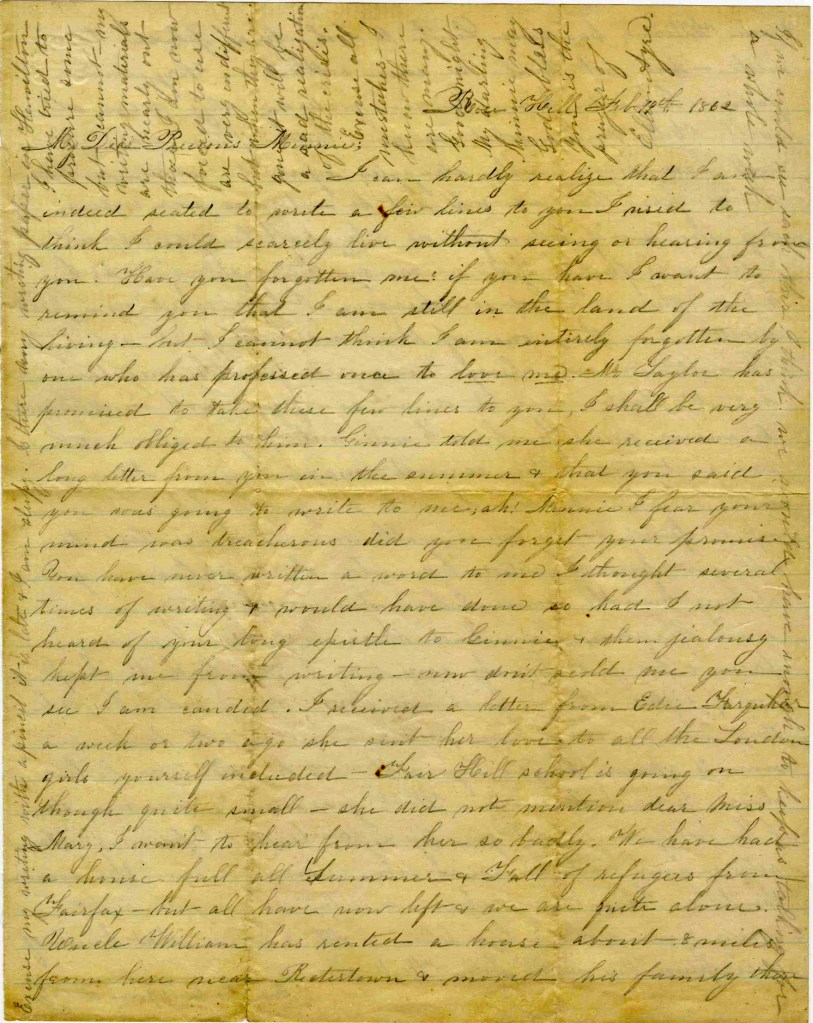 Rose Hill, Feb 12th 1862
My Dear Precious Minnie;
I can hardly realize that I am
indeed seated to write a few lines to you I used to
think I could scarcely live without seeing or hearing from
you. Have you forgotten me: if you have I want to
remind you that I am still in the land of the
living - but I cannot think I am entirely forgotten by
one who has professed once to love me. Mr Taylor has
promised to take these few lines to you, I shall be very
much obliged to him. Ginnie told me she received a
long letter from you in the summer & that you said
you was going to write to me, ah! Minnie I fear your
mind was treacherous did you forget your promise
You have never written a word to me I thought several
times of writing & would have done so had I not
heard of your long epistle to Ginnie & them jealousy
kept me from writing - now don't scold me you
see I am canded. I received a letter from Edie
a week or two ago she sent her love to all the Loudon
girls yourself included - Fair Hill school is going on
though quite small - she did not mention dear Miss
Mary, I want to hear from her so badly. We have had
a house full all Summer & Fall of refugees from
Fairfax - but all have now left & we are quite alone.
Uncle William has rented a house about 8 miles
from here near Rectertown & moved his family there
Excuse my writing with a pincel it is late & I am sleepy.
writing paper in Hamilton
I have tried to
prepare some
but cannot my
writing materials
are nearly out
those I don now
forced to use
are very indifferent
but when they are
gone it will be
a sad realization
of the crisis.
Excuse all
mistakes I
know there
are many.
Good night
My darling
Minnie may
God bless
you is the
prayer of
have enough to keep us talking for
a whole week